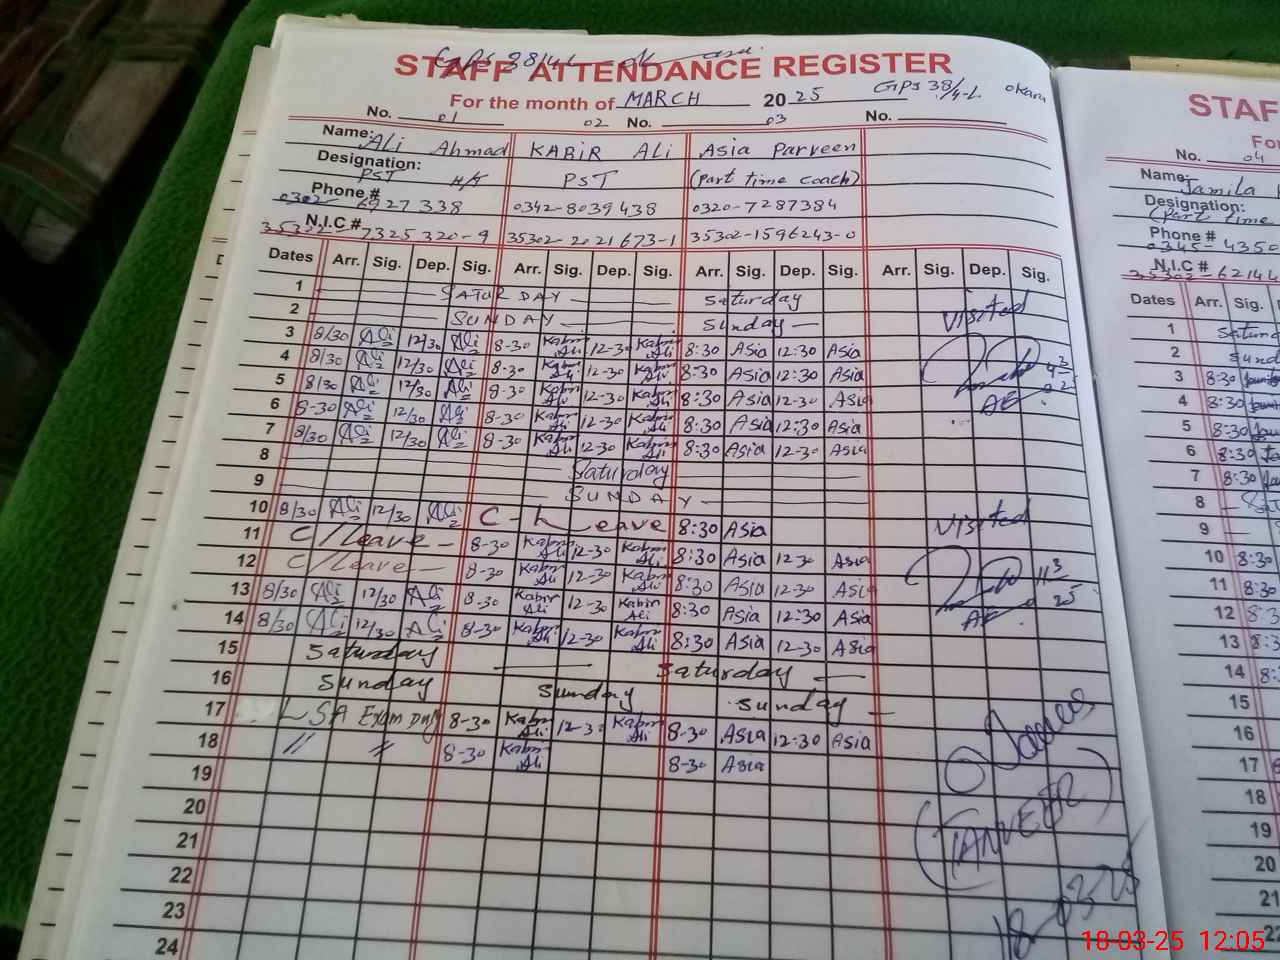 GPS 38/4-L
STAFF ATTENDANCE REGISTER
For the month of MARCH 2025 GPS 38/4-L okara
No. 01 02 No. 03 No.
Name: Ali Ahmad KABIR ALi Asia Parveen
Designation: PST H/T PST (Part time coach)
Phone # 0302-6927338 0342-8039438 0320-7287384
N.I.C # 35302-7325320-9 35302-2021673-1 35302-1596243-0
Dates Arr. Sig. Dep. Sig. Arr. Sig. Dep. Sig. Arr. Sig. Dep. Sig. Arr. Sig. Dep. Sig.
1 SATURDAY Saturday
2 SUNDAY Sunday
3 8/30 Ali 12/30 Ali 8-30 Kabir Ali 12-30 Kabir Ali 8:30 Asia 12:30 Asia
4 8/30 Ali 12/30 Ali 8-30 Kabir Ali 12-30 Kabir Ali 8:30 Asia 12:30 Asia
5 8/30 Ali 12/30 Ali 8-30 Kabir Ali 12-30 Kabir Ali 8:30 Asia 12-30 Asia
6 8-30 Ali 12/30 Ali 8-30 Kabir Ali 12-30 Kabir Ali 8:30 Asia 12:30 Asia
7 8/30 Ali 12/30 Ali 8-30 Kabir Ali 12-30 Kabir Ali 8:30 Asia 12-30 Asia
8 Saturday
9 SUNDAY
10 8/30 Ali 12/30 Ali C-Leave 8:30 Asia
11 C/Leave 8-30 Kabir Ali 12-30 Kabir Ali 8:30 Asia 12-30 Asia
12 C/Leave 8-30 Kabir Ali 12-30 Kabir Ali 8:30 Asia 12-30 Asia
13 8/30 Ali 12/30 Ali 8-30 Kabir Ali 12-30 Kabir Ali 8:30 Asia 12:30 Asia
14 8/30 Ali 12/30 Ali 8-30 Kabir Ali 12-30 Kabir Ali 8:30 Asia 12-30 Asia
15 Saturday Saturday
16 Sunday Sunday Sunday
17 LSA Exam Duty 8-30 Kabir Ali 12-30 Kabir Ali 8-30 Asia 12:30 Asia
18 // // 8-30 Kabir Ali 8-30 Asia
19
20
21
22
23
24
Visited
4/3/25
AE
Visited
11/3/25
AE
(TANVEER)
18-03-25
STAF
No. 04
Name: Jamila
Designation: (Part time
Phone # 0345-4350
N.I.C # 35302-6214
Dates Arr. Sig.
1 Saturd
2 Sund
3 8:30
4 8:30
5 8:30
6 8:30
7 8:30
8
9
10 8:30
11 8:30
12 8:3
13 8:3
14 8:3
15
16
17
18
19
20
21
18-03-25 12:05